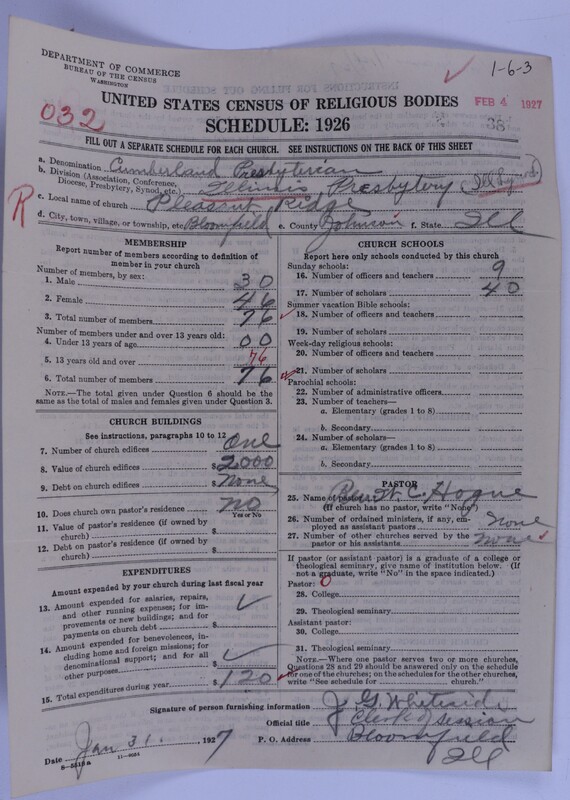 DEPARTMENT OF COMMERCE
BUREAU OF THE CENSUS
WASHINGTON
1-6-3
UNITED STATES CENSUS OF RELIGIOUS BODIES
FEB 4 1927
032
SCHEDULE: 1926
38
FILL OUT A SEPARATE SCHEDULE FOR EACH CHURCH. SEE INSTRUCTIONS ON THE BACK OF THIS SHEET
a. Denomination Cumberland Presbyterian
b. Division (Association, Conference, Diocese, Presbytery, Synod, etc.) Illinois Presbytery
R
c. Local name of church Pleasant Ridge
d. City, town, village, or township, etc. Bloomfield e. County Johnson f. State Ill
MEMBERSHIP
Report number of members according to definition of
member in your church
Number of members, by sex:
1. Male 30
2. Female 46
3. Total number of members 76
Number of members under and over 13 years old:
4. Under 13 years of age 00
5. 13 years old and over 76
6. Total number of members 76
NOTE.—The total given under Question 6 should be the
same as the total of males and females given under Question 3.
CHURCH BUILDINGS
See instructions, paragraphs 10 to 12
7. Number of church edifices One
8. Value of church edifices $ 2000
9. Debt on church edifices $ None
10. Does church own pastor's residence no
Yes or No
11. Value of pastor's residence (if owned by
church) $
12. Debt on pastor's residence (if owned by
church) $
EXPENDITURES
Amount expended by your church during last fiscal year
13. Amount expended for salaries, repairs,
and other running expenses; for im-
provements or new buildings; and for
payments on church debt $
14. Amount expended for benevolences, in-
cluding home and foreign missions; for
denominational support; and for all
other purposes $
15. Total expenditures during year $ 120
CHURCH SCHOOLS
Report here only schools conducted by this church
Sunday schools:
16. Number of officers and teachers 9
17. Number of scholars 40
Summer vacation Bible schools:
18. Number of officers and teachers
19. Number of scholars
Week-day religious schools:
20. Number of officers and teachers
21. Number of scholars
Parochial schools:
22. Number of administrative officers
23. Number of teachers—
a. Elementary (grades 1 to 8)
b. Secondary
24. Number of scholars—
a. Elementary (grades 1 to 8)
b. Secondary
PASTOR
25. Name of pastor C. Hogue
(If church has no pastor, write "None")
26. Number of ordained ministers, if any, em-
ployed as assistant pastors None
27. Number of other churches served by the
pastor or his assistants None
If pastor (or assistant pastor) is a graduate of a college or
theological seminary, give name of institution below. (If
not a graduate, write "No" in the space indicated.)
Pastor: 0
28. College
29. Theological seminary
Assistant pastor:
30. College
31. Theological seminary
NOTE.—Where one pastor serves two or more churches,
Questions 28 and 29 should be answered only on the schedule
for one of the churches; on the schedules for the other churches,
write "See schedule for church."
Signature of person furnishing information J. G. Whiteside
Official title Clerk of Session
P. O. Address Bloomfield
Ill
Date Jan 31, 1927
8-5519a 11-9024